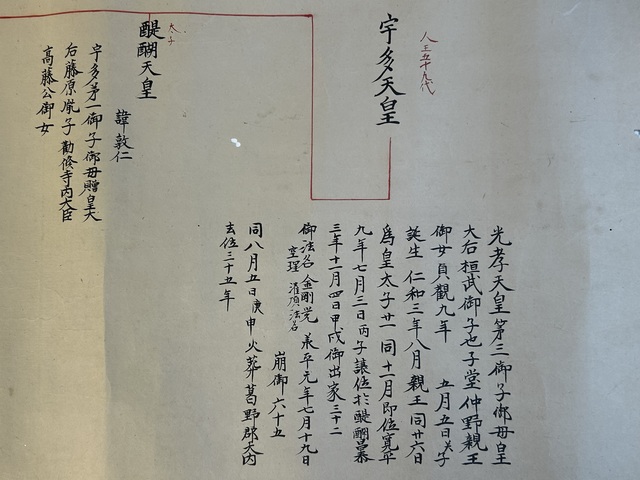 人王五十九代
宇多天皇
光孝天皇第三御子御母皇
大后桓武御子也子堂仲野親王
御女貞觀九年 五月五日
誕生 仁和三年八月親王同廿六日
爲皇太子廿一同十一月即位寛平
九年七月三日丙子讓位於醍醐
三年十一月四日甲戌御出家三十二
御法名金剛覚 承平元年七月十九日
空理 灌頂法名
崩御六十五
同八月五日庚申火葬葛野郡大内
去位三十五年
太子
醍醐天皇
諱敦仁
宇多第一御子御母贈皇太
后藤原胤子勸修寺内大臣
高藤公御女